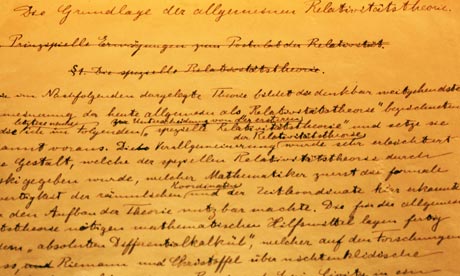 Die Grundlage der allgemeinen Relativitätstheorie.
Prinzipielle Erwägungen zum Postulat der Relativität.
§1. Die spezielle Relativitätstheorie.
e im Nachfolgenden dargelegte Theorie bildet die denkbar weitgehendste
meinerung der heute allgemein als "Relativitätstheorie" bezeichneten
die letztere nenne zur Unterscheidung von der ersteren
ich im Folgenden "spezielle Relativitätstheorie" und setze sie
der Relativitätstheorie
annt voraus. Die Verallgemeinerung wurde sehr erleichtert
e Gestalt, welche der speziellen Relativitätstheorie durch
kowski gegeben wurde, welcher Mathematiker zuerst die formale
Koordinaten
wertigkeit der räumlichen und der Zeitkoordinate klar erkannte
den Aufbau der Theorie nutzbar machte. Die für die allgemeine
tstheorie nötigen mathematischen Hilfsmittel lagen fertig
dem "absoluten Differentialkalkül", welcher auf den Forschungen
ss, Riemann und Christoffel über nichteuklidische